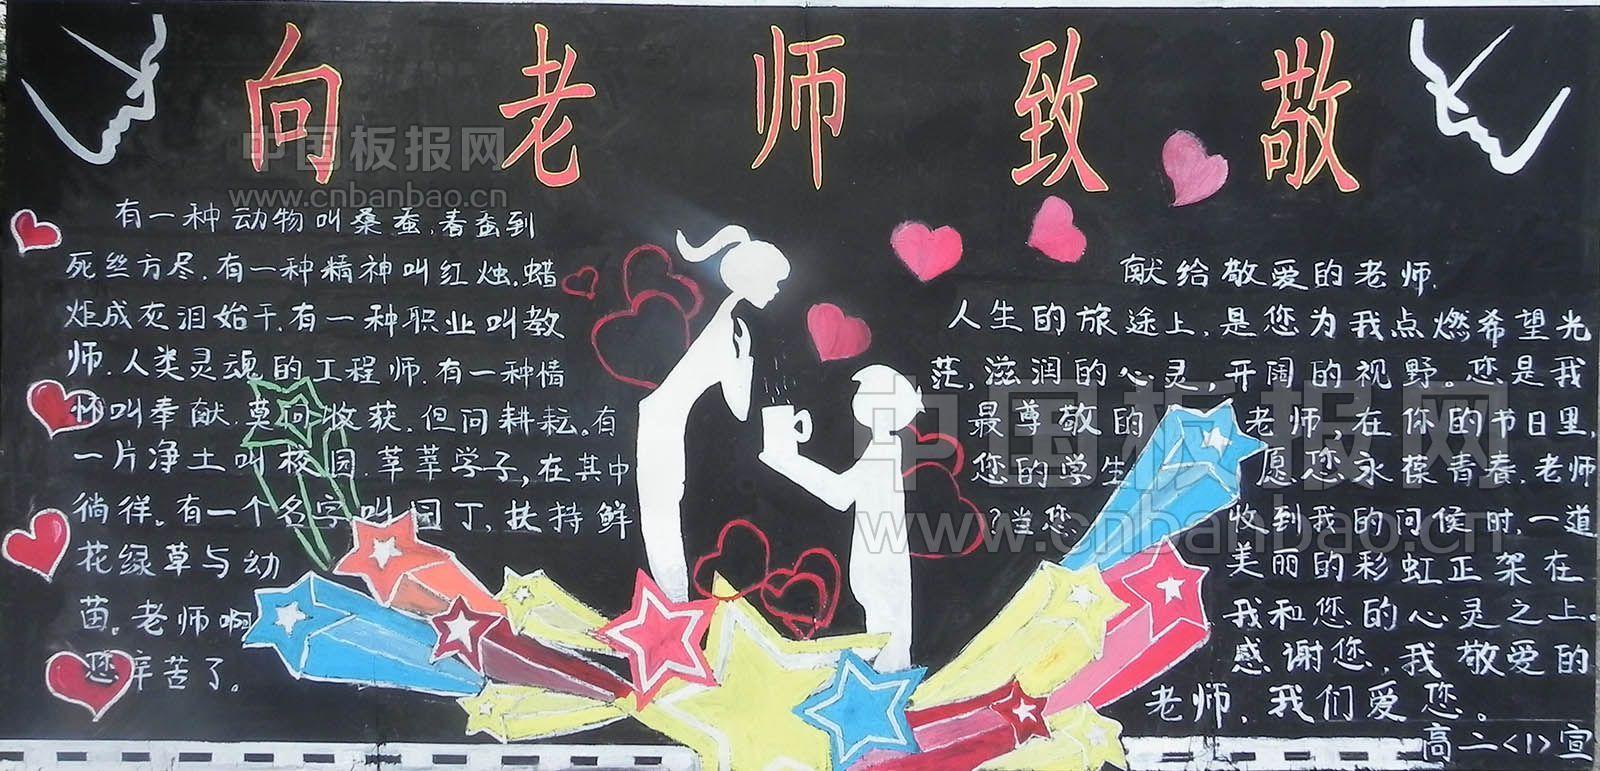 向老师致敬
有一种动物叫桑蚕,春蚕到
死丝方尽.有一种精神叫红烛.蜡
炬成灰泪始干.有一种职业叫教
师.人类灵魂的工程师.有一种情
怀叫奉献.莫问收获,但问耕耘。有
一片净土叫校园.莘莘学子,在其中
徜徉。有一个名字叫园丁,扶持鲜
花绿草与幼
苗。老师啊
您辛苦了。
献给敬爱的老师.
人生的旅途上,是您为我点燃希望光
茫,滋润的心灵,开阔的视野。您是我
最尊敬的老师,在你的节日里,
您的学生愿您永葆青春.老师
?当您收到我的问候时,一道
美丽的彩虹正架在
我和您的心灵之上。
感谢您,我敬爱的
老师,我们爱您。
高二<1>宣
中国板报网
www.cnbanbao.cn
中国板报网
www.cnbanbao.cn